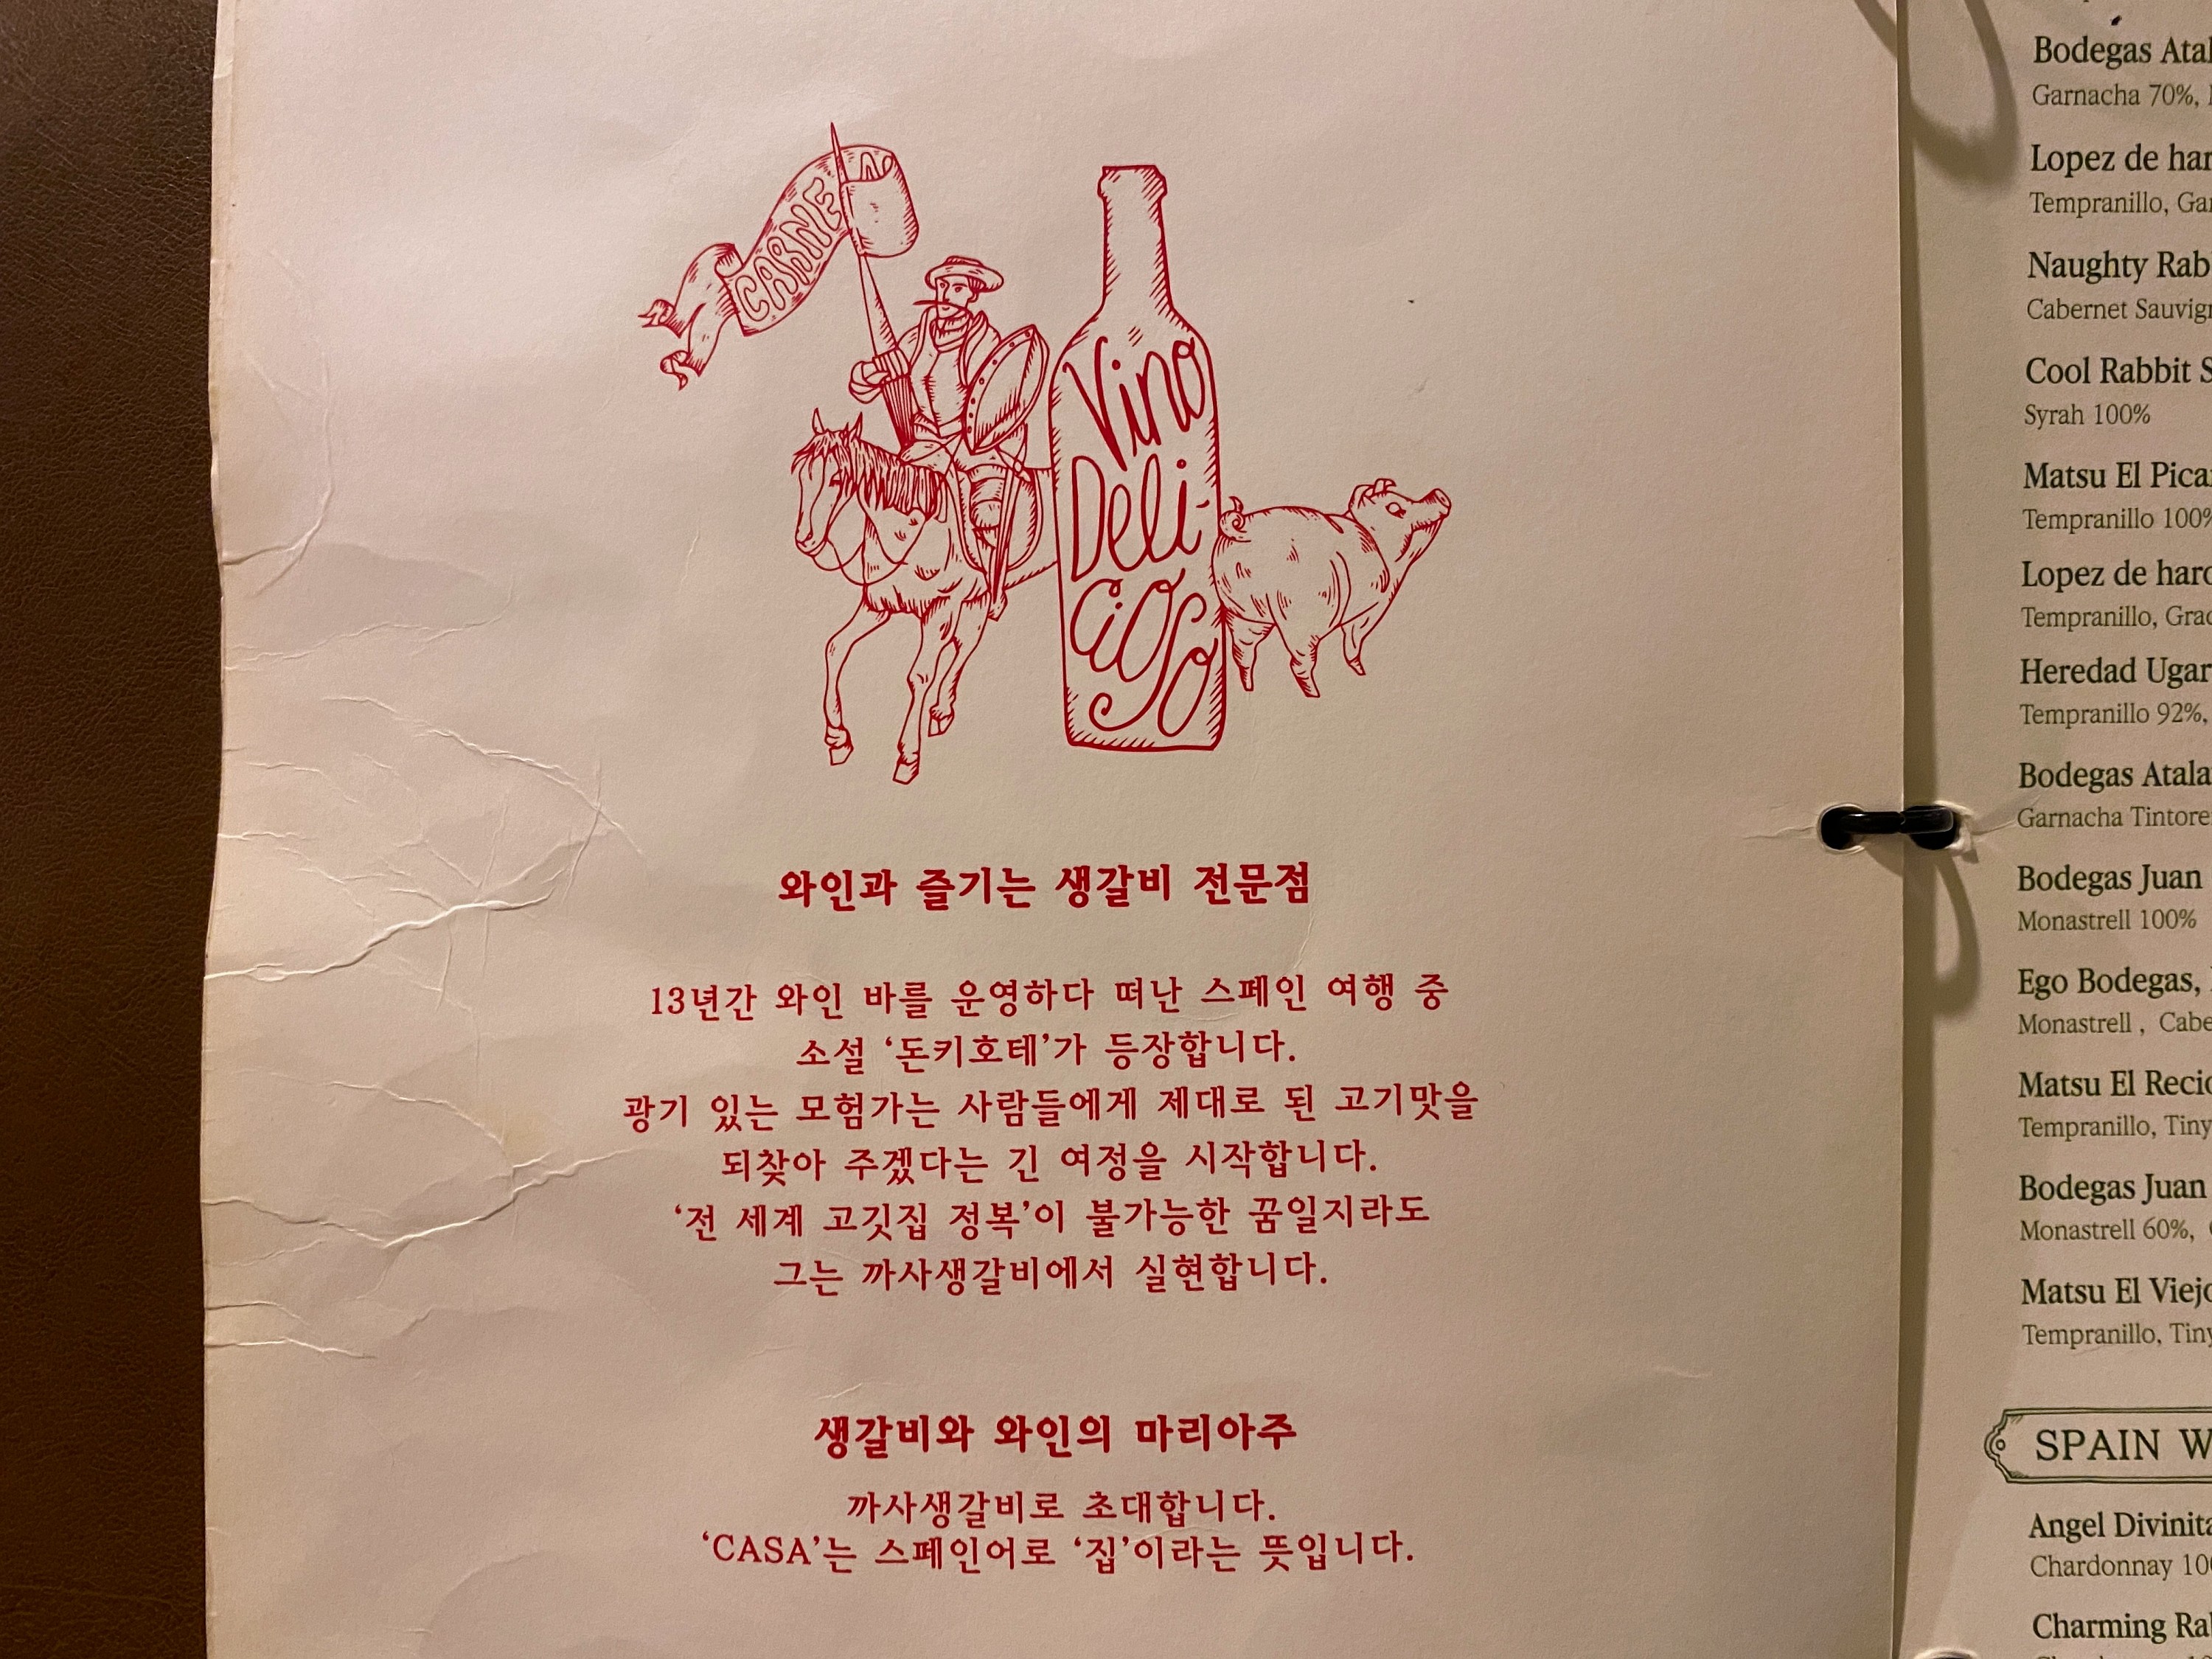 CARNE
Vino
Deli-
cioso
와인과 즐기는 생갈비 전문점
13년간 와인 바를 운영하다 떠난 스페인 여행 중
소설 ‘돈키호테’가 등장합니다.
광기 있는 모험가는 사람들에게 제대로 된 고기맛을
되찾아 주겠다는 긴 여정을 시작합니다.
‘전 세계 고깃집 정복’이 불가능한 꿈일지라도
그는 까사생갈비에서 실현합니다.
생갈비와 와인의 마리아주
까사생갈비로 초대합니다.
‘CASA’는 스페인어로 ‘집’이라는 뜻입니다.
Bodegas
Garnacha 70%,
Lopez de
Tempranillo,
Naughty
Cabernet
Cool Rabbit
Syrah 100%
Matsu El
Tempranillo 100%
Lopez de
Tempranillo,
Heredad
Tempranillo 92%,
Bodegas
Garnacha
Bodegas Juan
Monastrell 100%
Ego Bodegas,
Monastrell ,
Matsu El
Tempranillo,
Bodegas Juan
Monastrell 60%,
Matsu El
Tempranillo,
SPAIN
Angel
Chardonnay
Charming